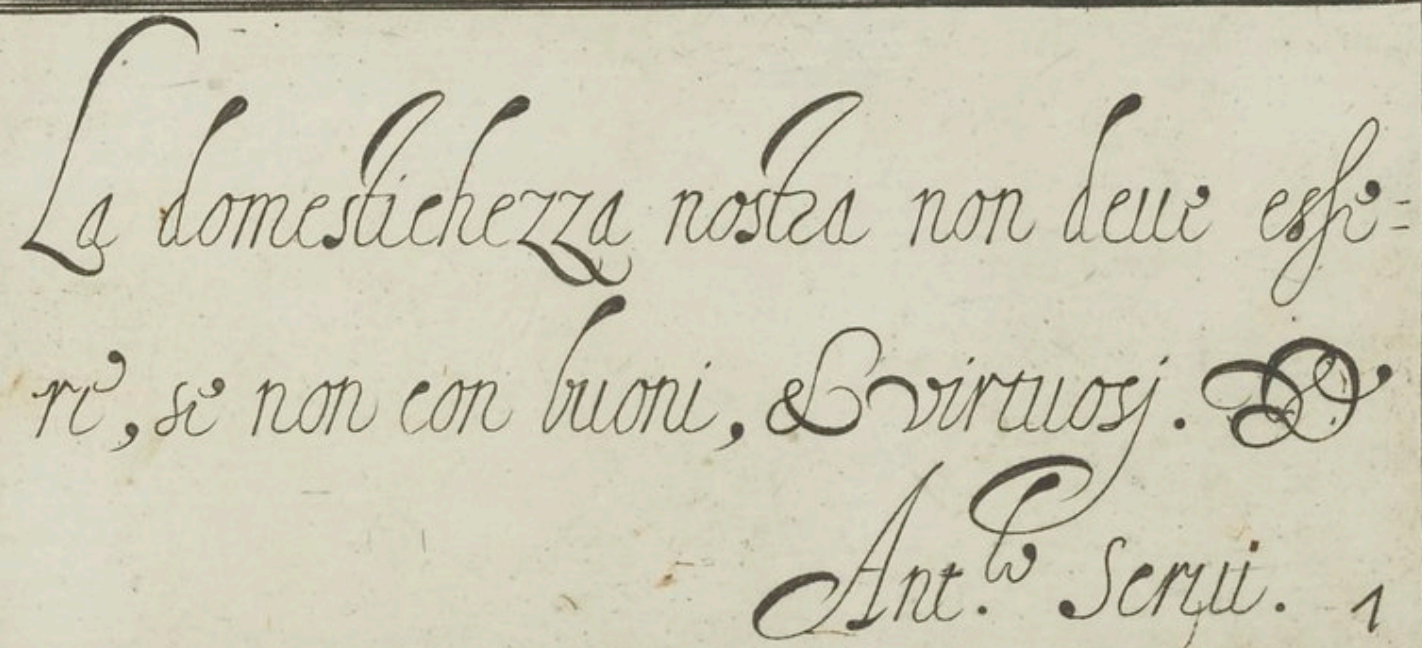 La domestichezza nostra non deue esse=
re, se non con buoni, & virtuosj. &
Ant.º Serui. 1